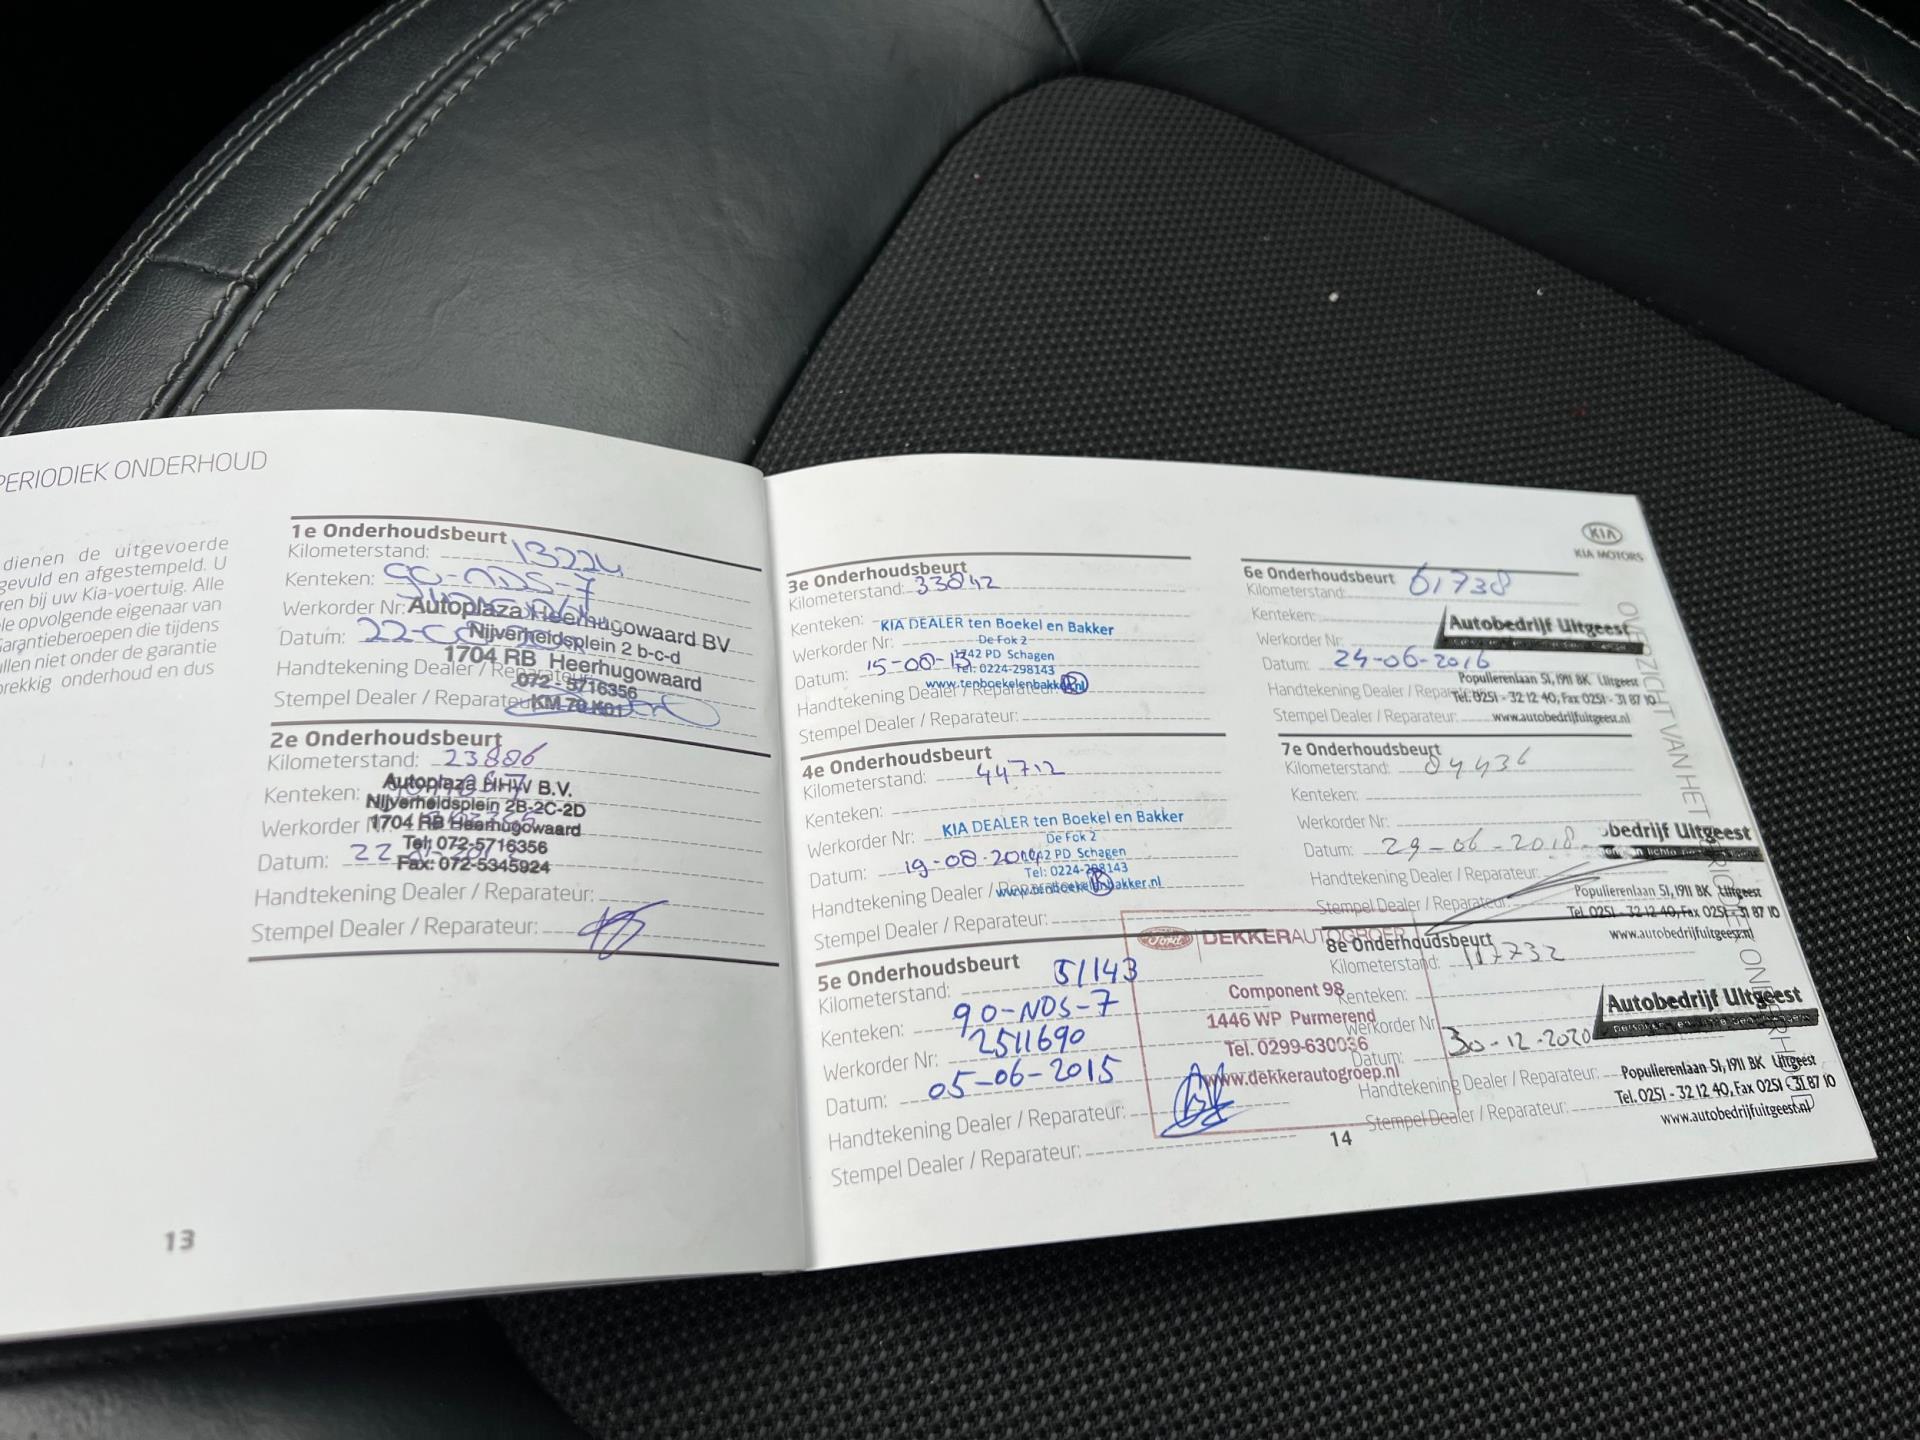 PERIODIEK ONDERHOUD
dienen de uitgevoerde
gevuld en afgestempeld. U
ren bij uw Kia-voertuig. Alle
le opvolgende eigenaar van
Garantieberoepen die tijdens
llen niet onder de garantie
brekkig onderhoud en dus
1e Onderhoudsbeurt
Kilometerstand: 13224
Kenteken: 90-NDS-7
Werkorder Nr:
Datum: 22-
Handtekening Dealer / Reparateur:
Stempel Dealer / Reparateur:
Autoplaza Heerhugowaard BV
Nijverheidsplein 2 b-c-d
1704 RB Heerhugowaard
072 - 5716356
KM 70 K01
2e Onderhoudsbeurt
Kilometerstand: 23886
Kenteken:
Werkorder Nr:
Datum: 22
Handtekening Dealer / Reparateur:
Stempel Dealer / Reparateur:
Autoplaza HHW B.V.
Nijverheidsplein 2B-2C-2D
1704 RB Heerhugowaard
Tel: 072-5716356
Fax: 072-5345924
13
3e Onderhoudsbeurt
Kilometerstand: 33842
Kenteken:
Werkorder Nr:
Datum: 15-08-13
Handtekening Dealer / Reparateur:
Stempel Dealer / Reparateur:
KIA DEALER ten Boekel en Bakker
De Fok 2
1742 PD Schagen
Tel: 0224-298143
www.tenboekelenbakker.nl
4e Onderhoudsbeurt
Kilometerstand: 44712
Kenteken:
Werkorder Nr:
Datum: 19-08-2014
Handtekening Dealer / Reparateur:
Stempel Dealer / Reparateur:
KIA DEALER ten Boekel en Bakker
De Fok 2
1742 PD Schagen
Tel: 0224-298143
www.tenboekelenbakker.nl
5e Onderhoudsbeurt
Kilometerstand: 51143
Kenteken: 90-NDS-7
Werkorder Nr: 2511690
Datum: 05-06-2015
Handtekening Dealer / Reparateur:
Stempel Dealer / Reparateur:
Ford DEKKERAUTOGROEP
Component 98
1446 WP Purmerend
Tel. 0299-630036
www.dekkerautogroep.nl
KIA
KIA MOTORS
6e Onderhoudsbeurt
Kilometerstand: 61738
Kenteken:
Werkorder Nr:
Datum: 24-06-2016
Handtekening Dealer / Reparateur:
Stempel Dealer / Reparateur:
Autobedrijf Uitgeest
Populierenlaan 51, 1911 BK Uitgeest
Tel. 0251 - 32 12 40, Fax 0251 - 31 87 10
www.autobedrijfuitgeest.nl
7e Onderhoudsbeurt
Kilometerstand: 84436
Kenteken:
Werkorder Nr:
Datum: 29-06-2018
Handtekening Dealer / Reparateur:
Stempel Dealer / Reparateur:
obedrijf Uitgeest
Populierenlaan 51, 1911 BK Uitgeest
Tel. 0251 - 32 12 40, Fax 0251 - 31 87 10
www.autobedrijfuitgeest.nl
8e Onderhoudsbeurt
Kilometerstand: 117732
Kenteken:
Werkorder Nr:
Datum: 30-12-2020
Handtekening Dealer / Reparateur:
Stempel Dealer / Reparateur:
Autobedrijf Uitgeest
Populierenlaan 51, 1911 BK Uitgeest
Tel. 0251 - 32 12 40, Fax 0251 - 31 87 10
www.autobedrijfuitgeest.nl
14
OVERZICHT VAN HET PERIODIEK ONDERHOUD